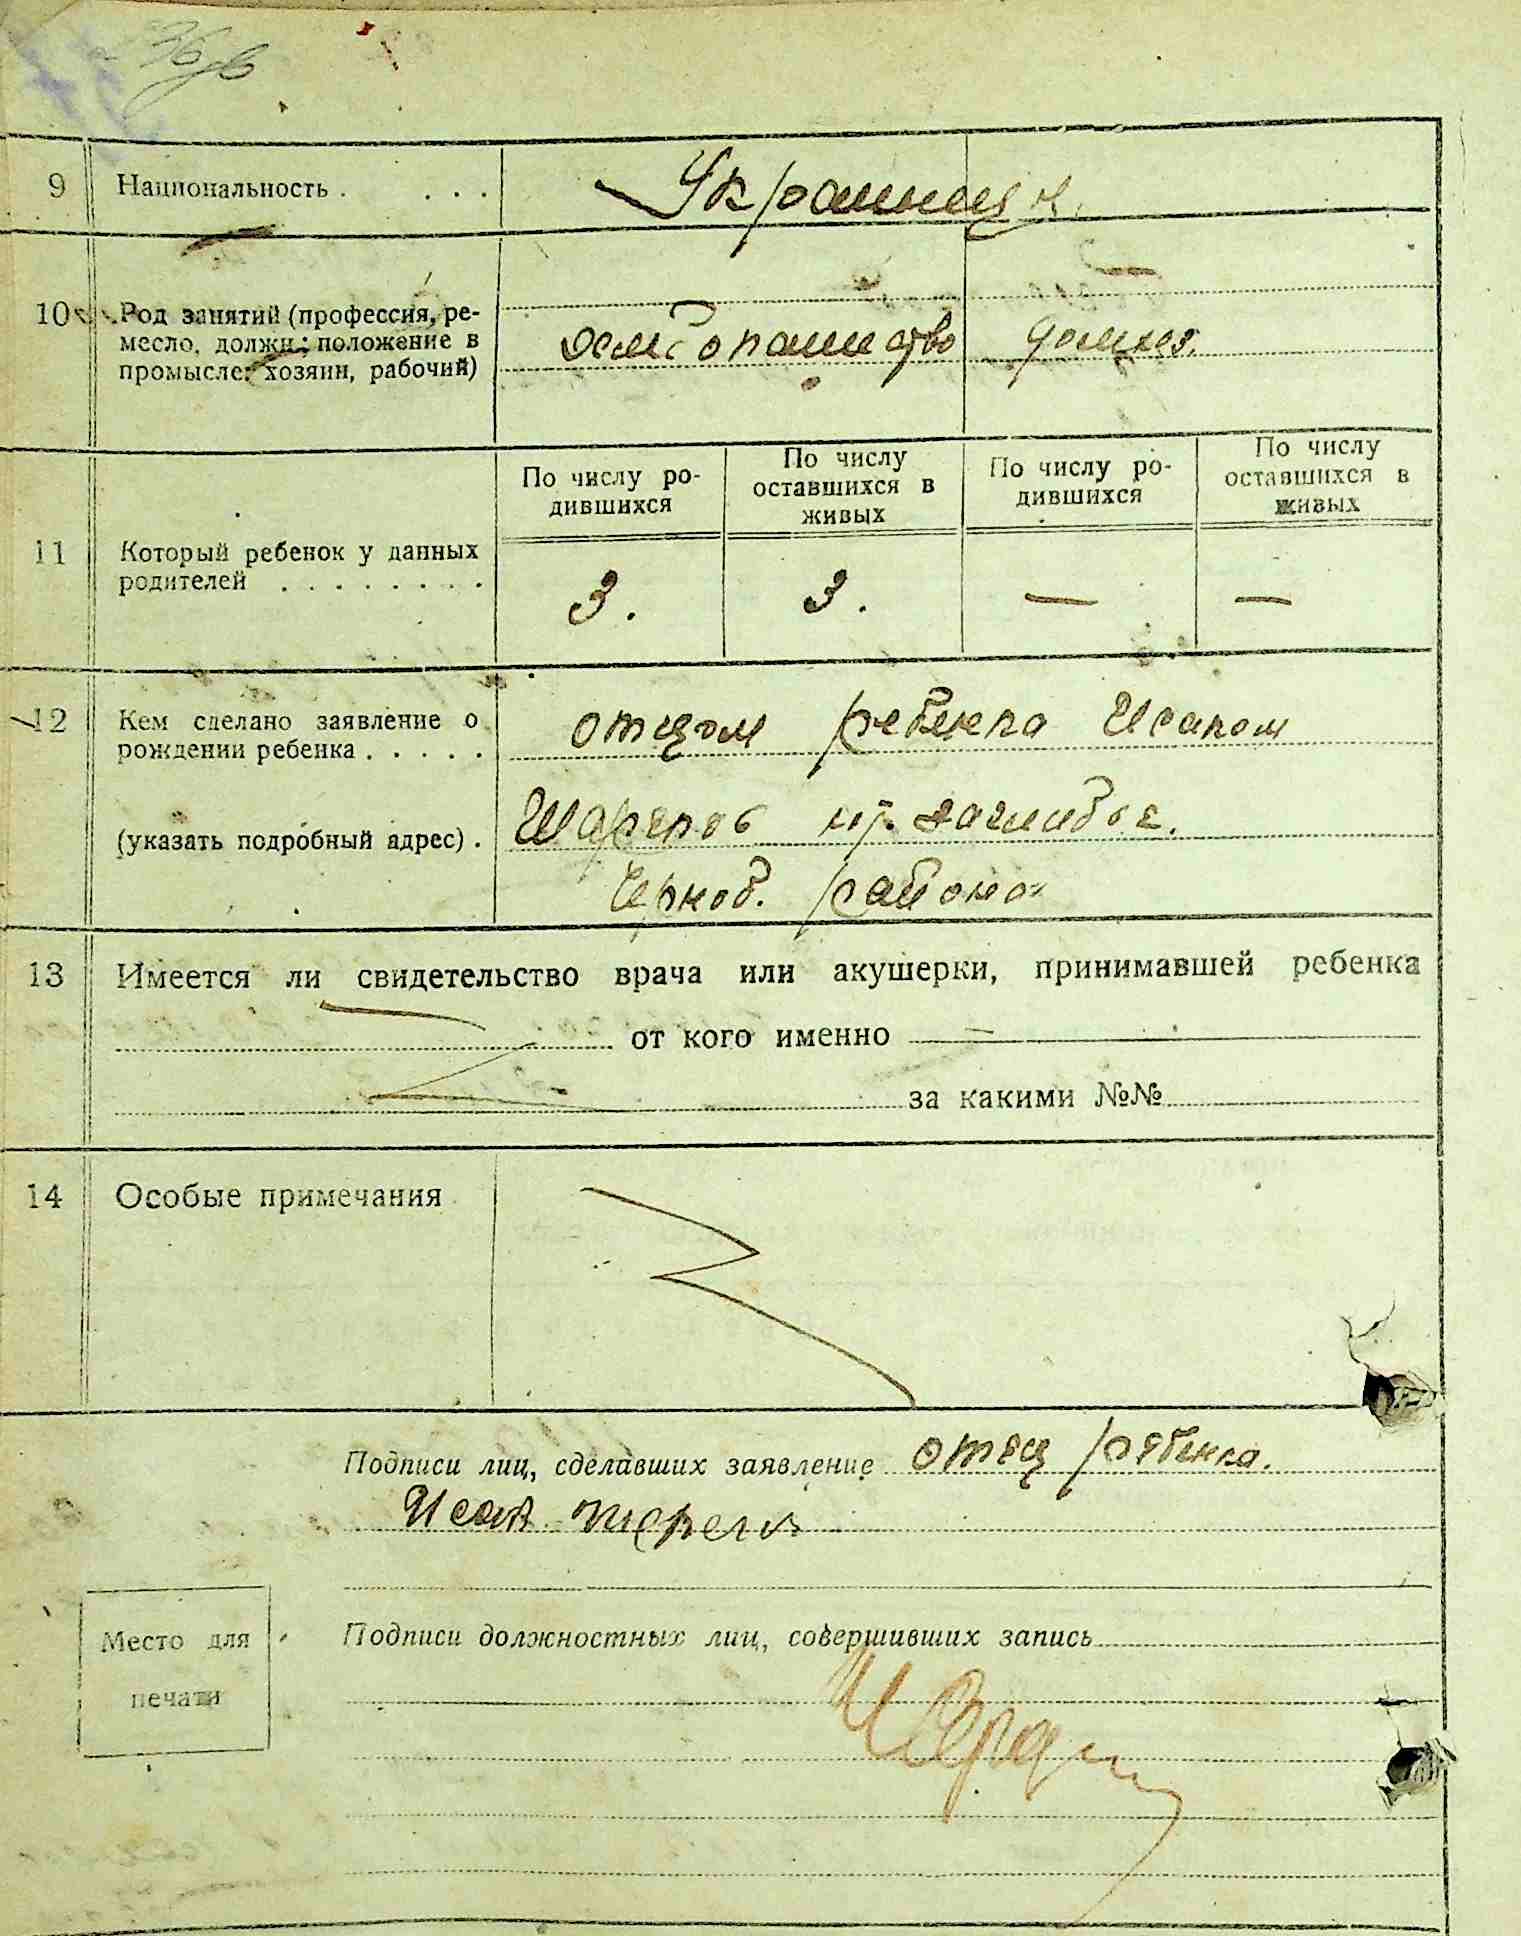 9 Национальность . . . . Украинцы
10 Род занятий (профессия, ре-
месло, должн.; положение в
промысле: хозяин, рабочий)
хлебопашество домхоз.
По числу ро-
дившихся
По числу
оставшихся в
живых
По числу ро-
дившихся
По числу
оставшихся в
живых
11 Который ребенок у данных
родителей . . . . . . . .
3. 3. — —
12 Кем сделано заявление о
рождении ребенка . . . . .
отцом ребенка Исаком
(указать подробный адрес) .
Черноб. района
13 Имеется ли свидетельство врача или акушерки, принимавшей ребенка
от кого именно
за какими №№
14 Особые примечания
Подписи лиц, сделавших заявление отец ребенка.
Исак
Подписи должностных лиц, совершивших запись
Место для
печати